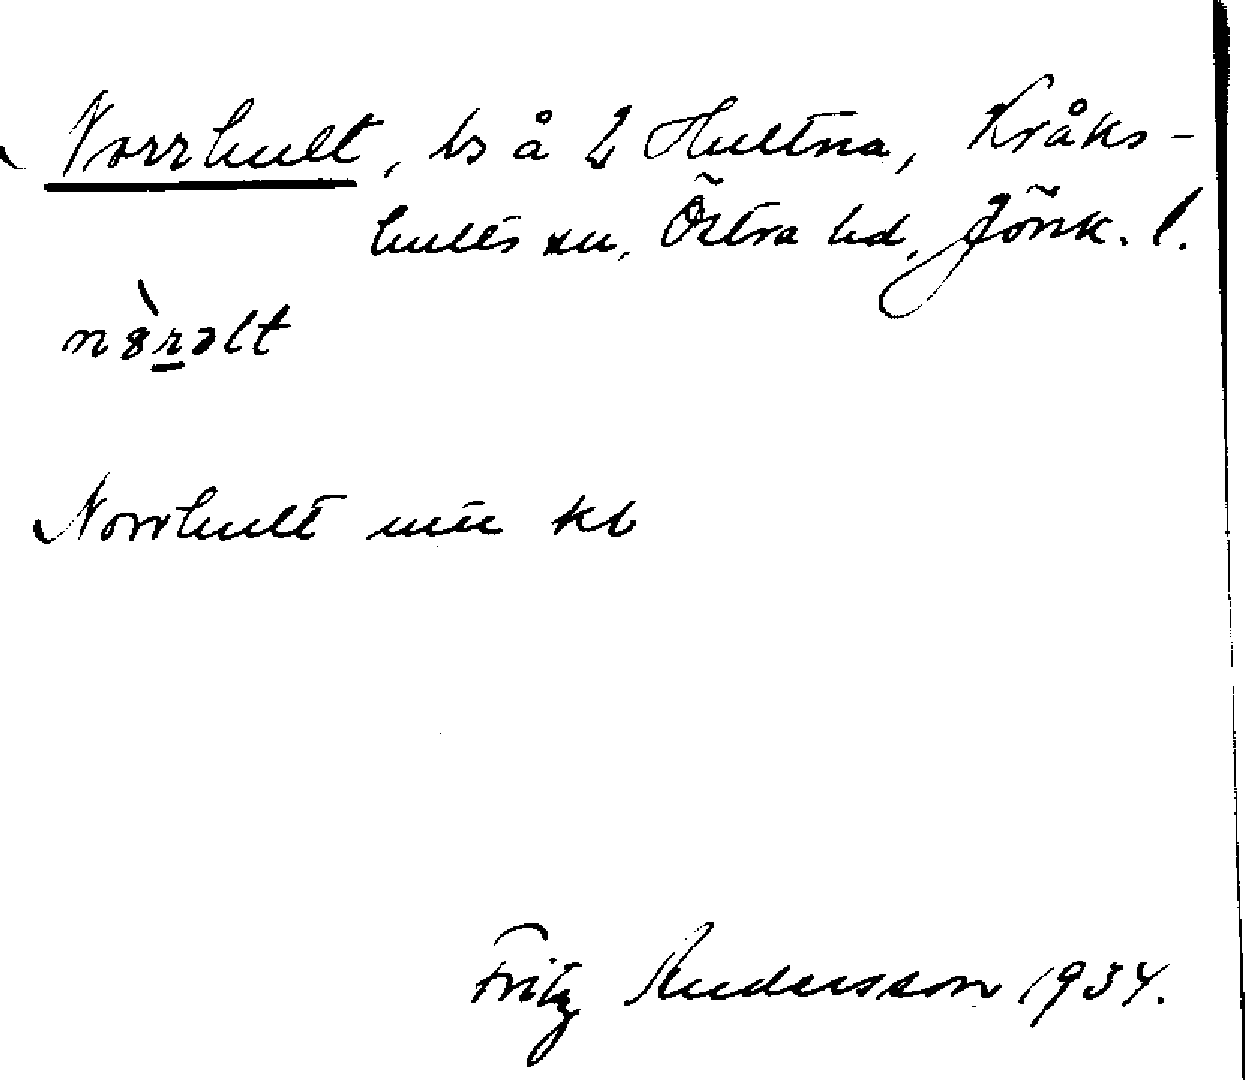 Norrhult, bs å 2 Hultna, Kråks-
hults sn, Östra hd, Jönk. l.
n 8̀r̲əlt
Norrhult nu kb
Fritz Andersson 1934.